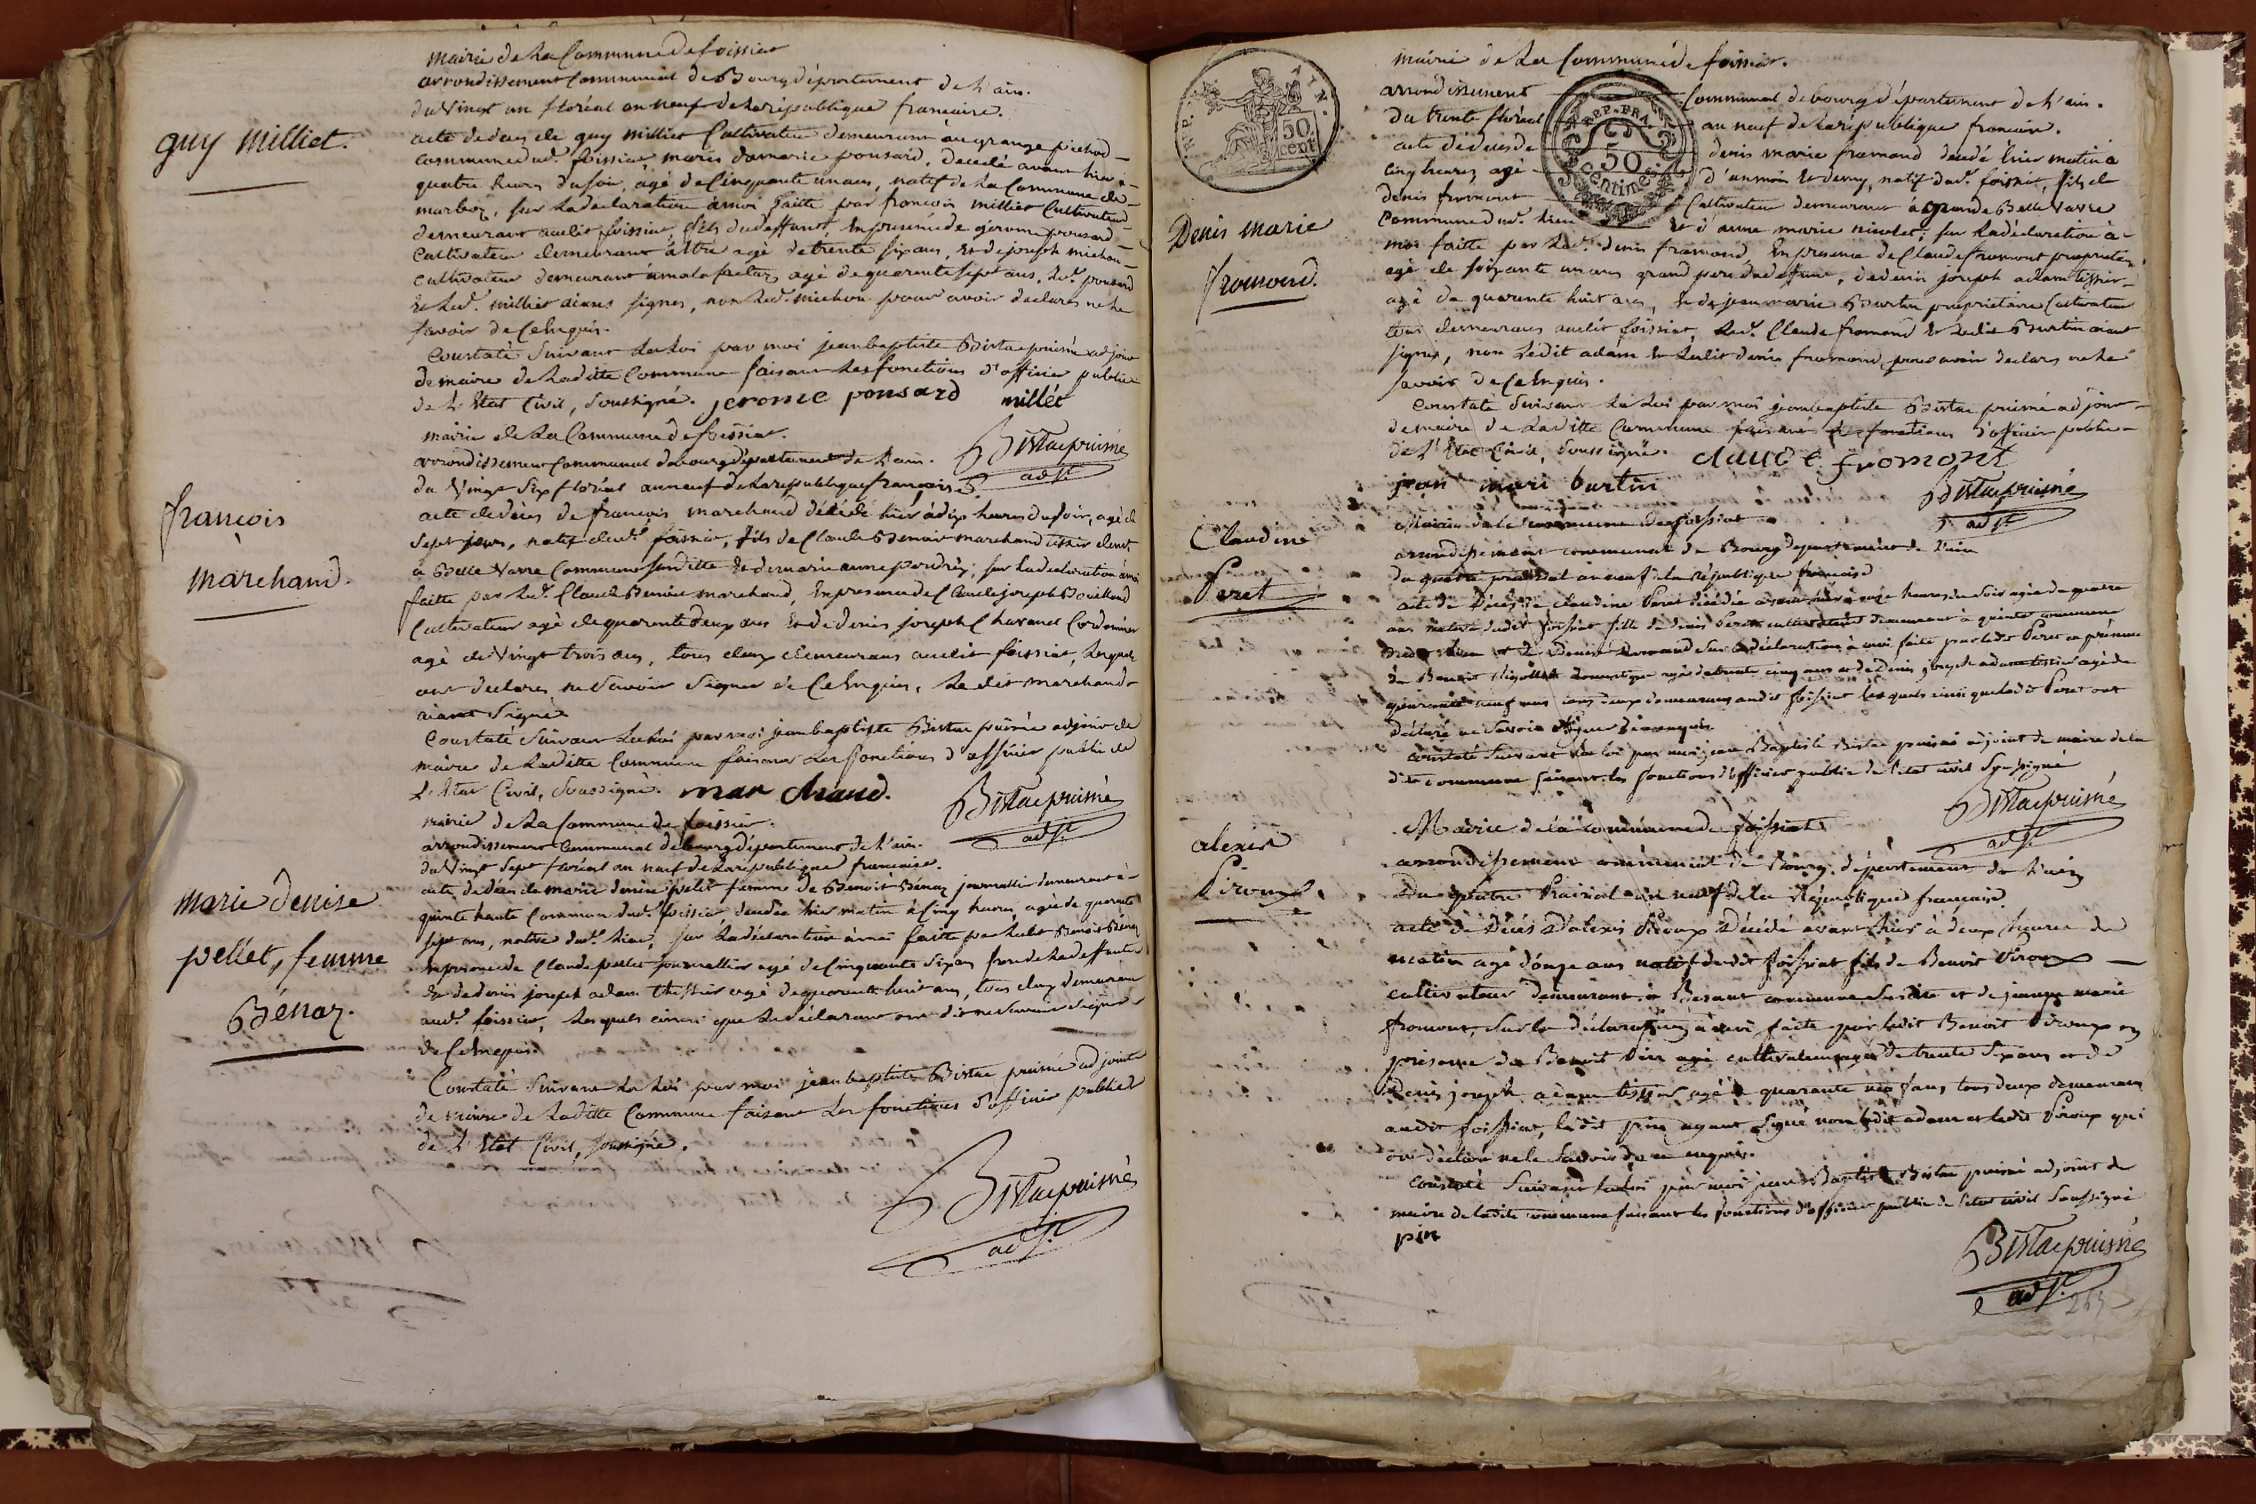 guy Milliet.
mairie de La Commune de foissiat
arrondissement Communal de Bourg département de L'ain.
du Vingt un floréal an neuf de La république francaise.
acte de deces de guy Milliet Cultivateur demeurant au grange pichod
Commune dud. foissiat, maris de marie ponsard, decedé avant hier à
quatre heures du soir, âgé de Cinquante un ans, natif de La Commune de
marboz, sur La declaration à moi faitte par francois milliet Cultivateur
demeurant audit foissiat, fils dudeffunt, En présence de gérome ponsard
Cultivateur demeurant à âgé de trente six ans, Et de joseph michon
cultivateur demeurant à malafretaz agé de quarente sept ans, Led. ponsard
Et Led. milliet aiants signes, non Led. michon pour avoir declares ne le
savoir de Ce Enquis.
Constaté Suivant La Loi par moi jean baptiste Bistac puisné adjoint
de maire de Laditte Commune faisant Les fonctions d'officier public
de L'Etat Civil, Soussigné. jerome ponsard millét
Bistac puisné
adjt.
françois
marchand.
mairie de La Commune de foissiat.
arrondissement Communal de bourg département de L'ain.
du Vingt Six floréal an neuf de La république françoise.
acte de déces de francois marchand décédé hier à dix heures du soir, agé de
Sept jours, natif dud. foissiat, fils de Claude Benoit marchand tissier demt
à Belle Vavre Commune Susditte Et de marie anne poudrés; sur La declaration à moi
faitte par Led. Claude Benoit marchand, En presence de Claude joseph Bouilloud
Cultivateur agé de quarente deux ans Et de denis joseph Chavanel Cordonnier
agé de Vingt trois ans, tous deux demeurans audit foissiat, Lesquels
ont declares ne Savoir Signer de Ce Enquis, Le dit marchand
aiant Signé
Constaté Suivant La Loi par moi jean baptiste Bistac puisné adjoint de
maire de Laditte Commune faisant Les fonctions d'officier public de
L'Etat Civil, Soussigné. mar chand.
Bistac puisné
adjt.
marie denise
pellét, femme
Bénaz.
mairie de La Commune de foissiat.
arrondissement Communal de bourg département de L'ain.
du Vingt Sept floréal an neuf de La république francaise.
acte de deces de marie denise pelét femme de Benoit Bénaz journallier demeurant à
quinte haute Commune dud. foissiat decedée hier matin à Cinq heures, agée de quarente
sept ans, native dud. Lieu, sur La déclaration à moi faitte par Ledit Benoit Bénaz
En presence de Claude pellet journallier agé de Cinquante Six ans frere de La deffunte
Et de denis joseph adam thissier agé de quarente huit ans, tous deux demeurans
aud. foissiat, Lesquels ainsi que Le déclarant ont dit ne Savoir Signer
de Ce Enquis.
Constaté Suivant La Loi par moi jean baptiste Bistac puisné adjoint
de maire de Laditte Commune faisant Les fonctions d'officier public
de L'Etat Civil, Soussigné.
Bistac puisné
adjt.
50 cent
REP. FRA.
50
centimes
Denis marie
fromond.
mairie de La Commune de foissiat.
arrondissement Communal de bourg département de L'ain.
du trente floréal an neuf de La république francaise.
acte de deces de denis marie fromond decedé hier matin à
Cinq heures, agé d'un mois Et demy, natif dud. foissiat, fils de
denis fromont Cultivateur demeurant à grande Belle Vavre
Commune dud. Lieu Et d'anne marie nicolet; sur La declaration à
moi faitte par Led. denis fromond, En presence de Claude fromont propriétaire
agé de soixante un ans grand pere du deffunt, de denis joseph adam tissier
agé de quarente huit ans, Et de jean marie Burtin propriétaire Cultivateur
tous demeurans audit foissiat, Led. Claude fromond Et Ledit Burtin aiant
signes, non Ledit adam Et Ledit denis fromond pour avoir declares ne le
savoir de Ce Enquis.
Constaté Suivant La Loi par moi jean baptiste Bistac puisné adjoint
de maire de Laditte Commune faisant Les fonctions d'officier public
de L'Etat Civil, Soussigné. claude fromont
jean mari burtin
Bistac puisné
adjt.
Claudine
Peret
Mairie de la commune de foissiat
arrondissement communal de Bourg département de l'ain
du quatre prairial an neuf de la République francaise
acte de Décès de claudine Peret décédée avant hier à onze heures du soir agée de quatre
ans native dudit foissiat fille de denis Peret cultivateur demeurant à quinte commune
dudit lieu et de Denise sur la déclaration à moi faite par ledit Peret en présence
de Benoit domestique agé de trente cinq ans et de Denis joseph adam tissier agé de
quarante neuf ans tous deux demeurans audit foissiat lesquels ainsi que ledit Peret ont
déclaré ne Savoir Signer de ce enquis
constaté Suivant la loi par moi jean Baptiste Bistac puisné adjoint de maire de la
dite commune faisant les fonctions d'officier public de l'etat civil Soussigné
Bistac puisné
adjt.
alexis
Piroux.
Mairie de la commune de foissiat
arrondissement communal de Bourg département de l'ain
du quatre Prairial an neuf de la République francaise
acte de Décès d'alexis Piroux Décédé avant hier à deux heures du
matin agé d'onze ans natif dudit foissiat fils de Benoit Piroux
cultivateur demeurant à Besant commune Susdite et de jeanne marie
fromont, sur la déclaration à moi faite par ledit Benoit Piroux en
présence de Benoit Pin agé cultivateur agé de trente Six ans et de
Denis joseph adam tissier agé de quarante neuf ans, tous deux demeurans
audit foissiat, ledit pin ayant Signé non ledit adam et ledit Piroux qui
ont déclaré ne le Savoir de ce enquis.
Constaté Suivant la loi par moi jean Baptiste Bistac puisné adjoint de
maire de ladite commune faisant les fonctions d'officier public de l'etat civil Soussigné
pin
Bistac puisné
adjt.